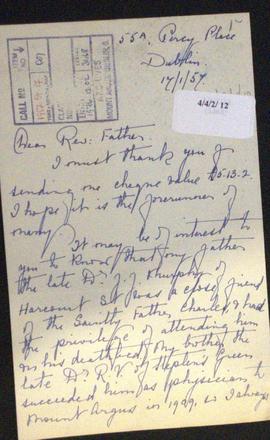 55A, Percy Place
Dublin.
17/1/57
4/4/2/12
CALL NO
ITEM NO
Dear Rev: Father.
I must thank you for
sending me cheque value £5-13-2.
I hope it is the forerunner of
many.
It may be of interest to
you to know that my father
the late Dr. J. J. Murphy of
Harcourt St was a close friend
of the Saintly Father Charles & had
the privilege of attending him
on his deathbed. My brother the
late Dr R. V. of Stephen's Green
succeeded him as physician to
Mount Argus in 1929, so I always